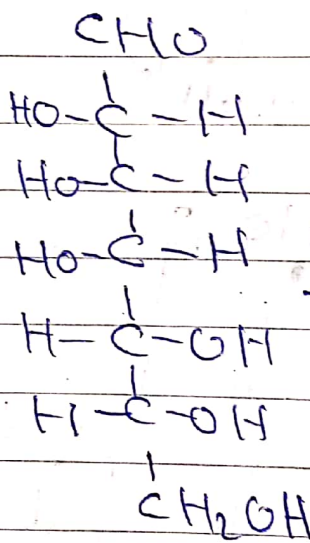 CHO
HO-C-H
HO-C-H
HO-C-H
H-C-OH
H-C-OH
CH₂OH